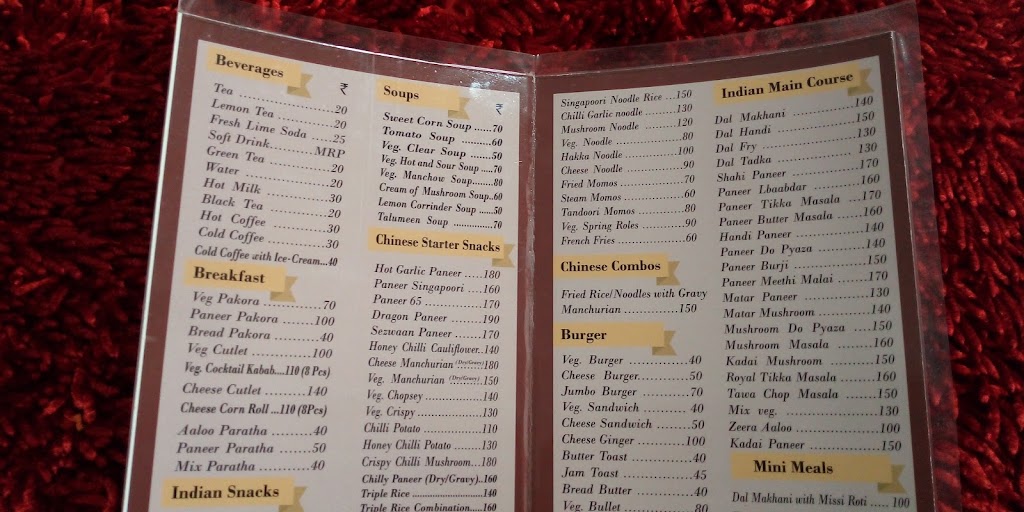 Beverages
₹
Tea ........................20
Lemon Tea ............20
Fresh Lime Soda .....25
Soft Drink...........MRP
Green Tea .............20
Water ...................20
Hot Milk ...............30
Black Tea .............20
Hot Coffee ............30
Cold Coffee ............30
Cold Coffee with Ice-Cream...40
Breakfast
Veg Pakora ...........70
Paneer Pakora ........100
Bread Pakora ..........40
Veg Cutlet .............100
Veg. Cocktail Kabab....110 (8 Pcs)
Cheese Cutlet .........140
Cheese Corn Roll ...110 (8Pcs)
Aaloo Paratha .........40
Paneer Paratha ........50
Mix Paratha ............40
Indian Snacks
Soups
₹
Sweet Corn Soup ......70
Tomato Soup ..........60
Veg. Clear Soup ......50
Veg. Hot and Sour Soup ....70
Veg. Manchow Soup.......80
Cream of Mushroom Soup..60
Lemon Corrinder Soup .....50
Talumeen Soup ...............70
Chinese Starter Snacks
Hot Garlic Paneer .....180
Paneer Singapoori ....160
Paneer 65 ................170
Dragon Paneer .........190
Sezwaan Paneer .......170
Honey Chilli Cauliflower..140
Cheese Manchurian (Dry/Gravy)180
Veg. Manchurian (Dry/Gravy).150
Veg. Chopsey ..............140
Veg. Crispy .................130
Chilli Potato ...............110
Honey Chilli Potato .......130
Crispy Chilli Mushroom...180
Chilly Paneer (Dry/Gravy)..160
Triple Rice .......................140
Triple Rice Combination.....160
Singapoori Noodle Rice ...150
Chilli Garlic noodle .........130
Mushroom Noodle .........120
Veg. Noodle .................80
Hakka Noodle ..............100
Cheese Noodle ..............90
Fried Momos ................70
Steam Momos ...............60
Tandoori Momos ...........80
Veg. Spring Roles ..........90
French Fries .................60
Chinese Combos
Fried Rice/Noodles with Gravy
Manchurian ..............150
Burger
Veg. Burger .............40
Cheese Burger...........50
Jumbo Burger ..........70
Veg. Sandwich ......... 40
Cheese Sandwich .......50
Cheese Ginger .........100
Butter Toast ............40
Jam Toast ...............45
Bread Butter ...........40
Veg. Bullet ..............80
Indian Main Course
Dal Makhani ..............140
Dal Handi .................150
Dal Fry .....................130
Dal Tadka ................. 130
Shahi Paneer .............170
Paneer Lbaabdar ........160
Paneer Tikka Masala ...170
Paneer Butter Masala .....160
Handi Paneer ..............140
Paneer Do Pyaza .........140
Paneer Burji ...............150
Paneer Meethi Malai .....170
Matar Paneer .............130
Matar Mushroom .........140
Mushroom Do Pyaza ....150
Mushroom Masala .......160
Kadai Mushroom ........150
Royal Tikka Masala ......160
Tawa Chop Masala ......150
Mix veg. ...................130
Zeera Aaloo ...............100
Kadai Paneer .............150
Mini Meals
Dal Makhani with Missi Roti ..... 100